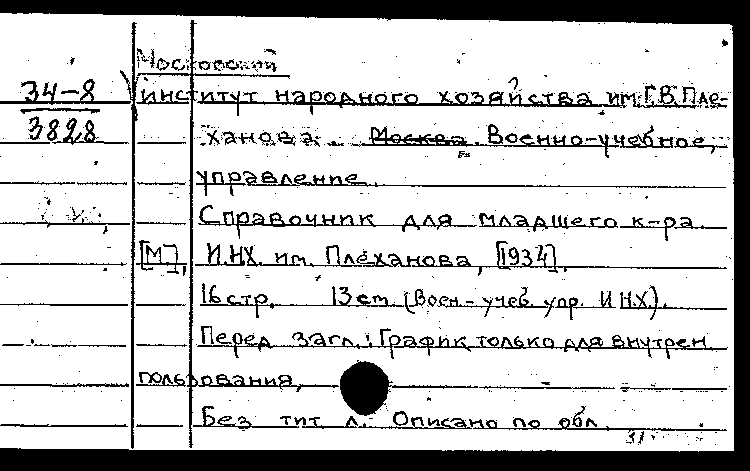 Московский
34-8
институт народного хозяйства им. Г.В. Пле-
3828
ханова. Москва. Военно-учебное,
управление.
Справочник для младшего к-ра.
[М.], И.НХ. им. Плеханова, [1934].
16 стр. 13 cm. (Воен.-учеб. упр. ИНХ).
Перед загл.: График только для внутрен.
пользования,
Без тит. л. Описано по обл.
31